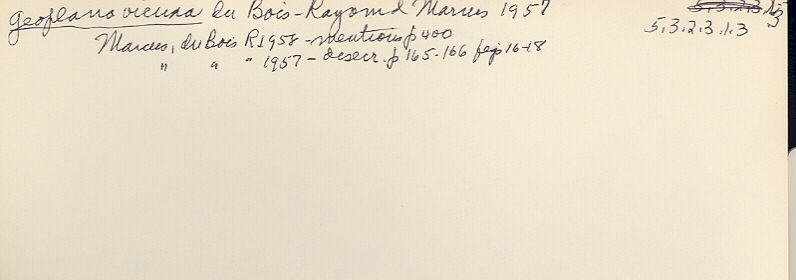 Geoplana vicuna du Bois-Raymond Marcus 1957
5.3.2.3.1.3
Marcus, du Bois R 1958 - mentions p 400
" " " 1957 - descr. p 165-166 figs 16-18